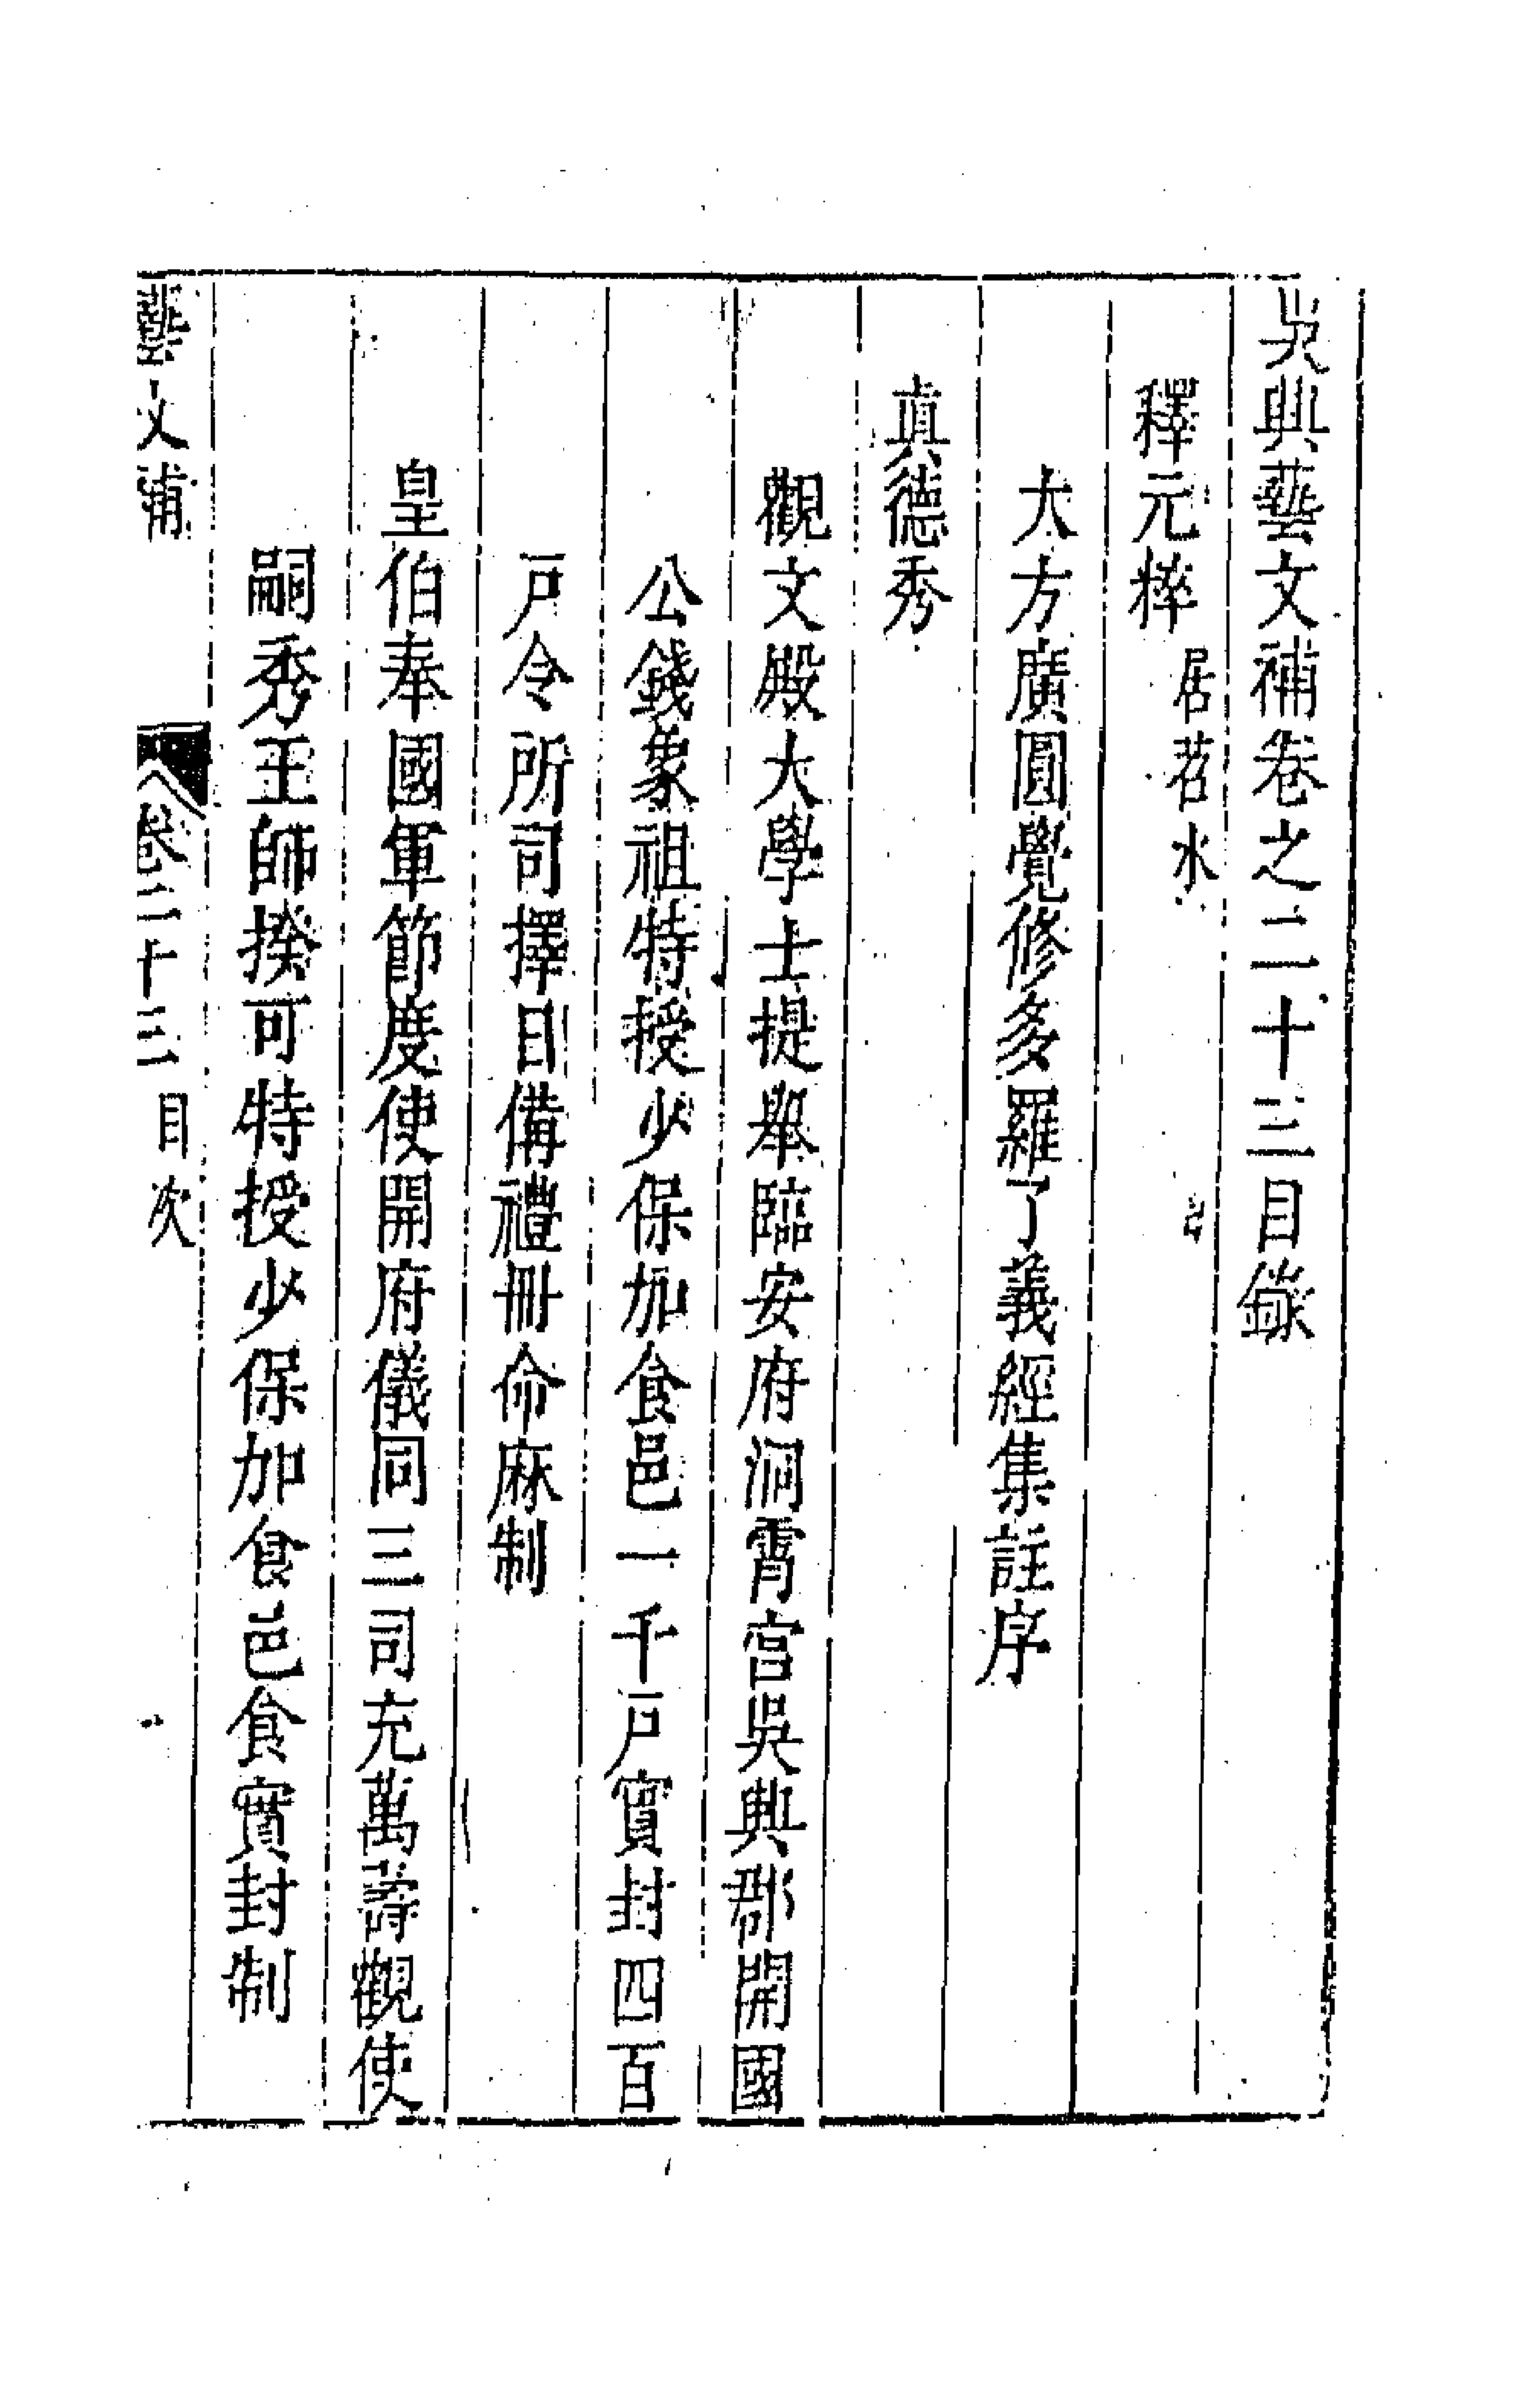 吳興藝文補卷之二十三目錄
釋元粹居苕水
大方廣圓覺修多羅了義經集註序
真德秀
觀文殿大學士提舉臨安府洞霄宮吳興郡開國
公錢象祖特授少保加食邑一千戶實封四百
戶令所司擇日備禮冊命麻制
皇伯奉國軍節度使開府儀同三司充萬壽觀使
嗣秀王師揆可特授少保加食邑食實封制
藝文補 卷二十三目次